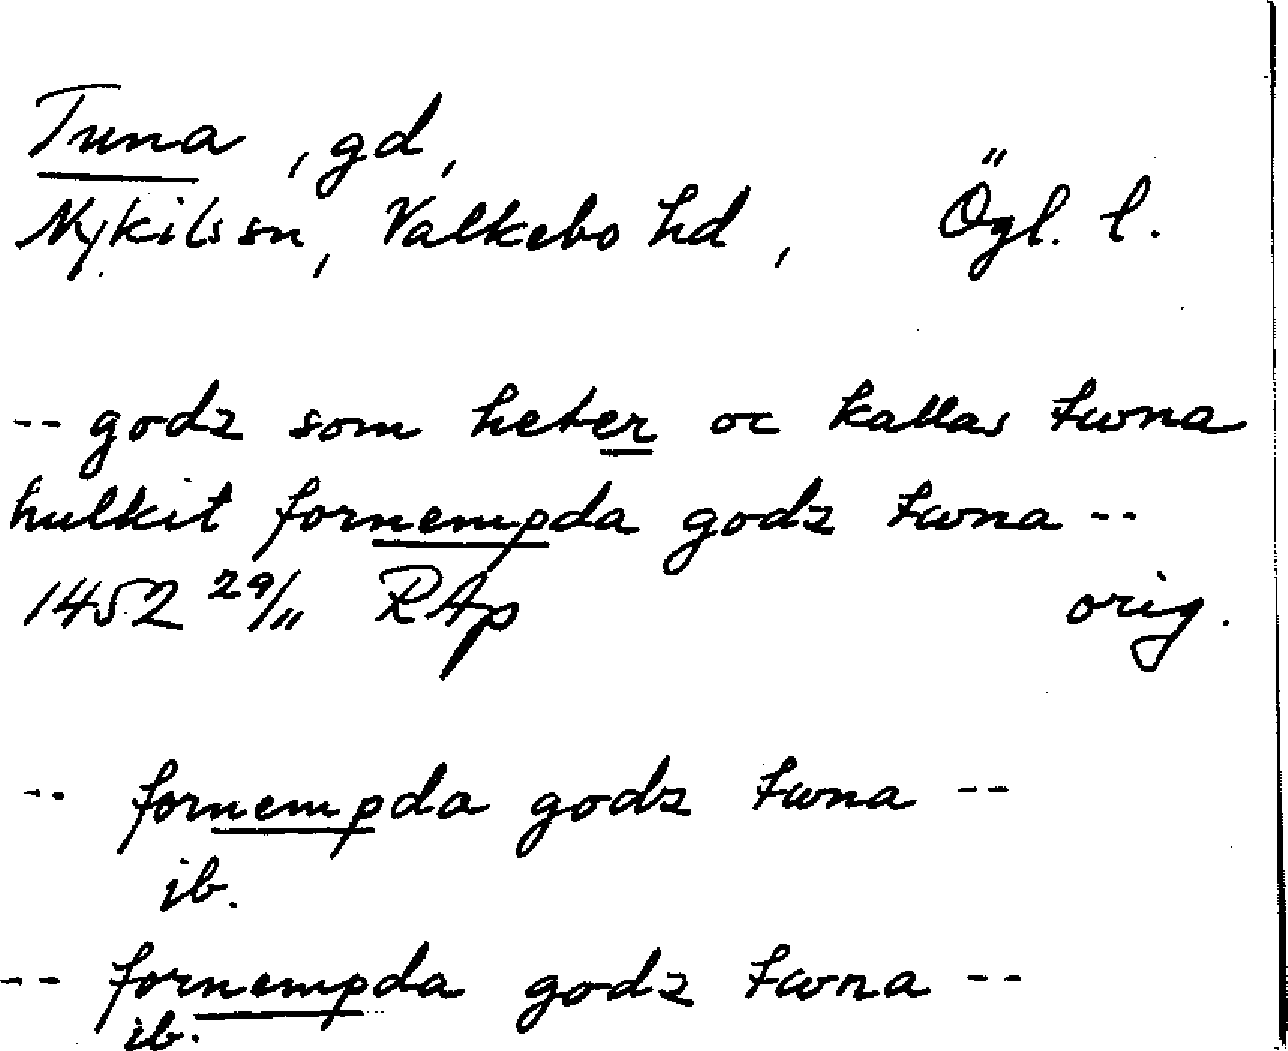 Tuna, gd,
Nykils sn, Valkebo hd, Ögl. l.
-- godz som heter oc kallas twna
hulkit fornempda godz twna --
1452 29/11 RAp orig.
-- fornempda godz twna --
ib.
-- fornempda godz twna --
ib.